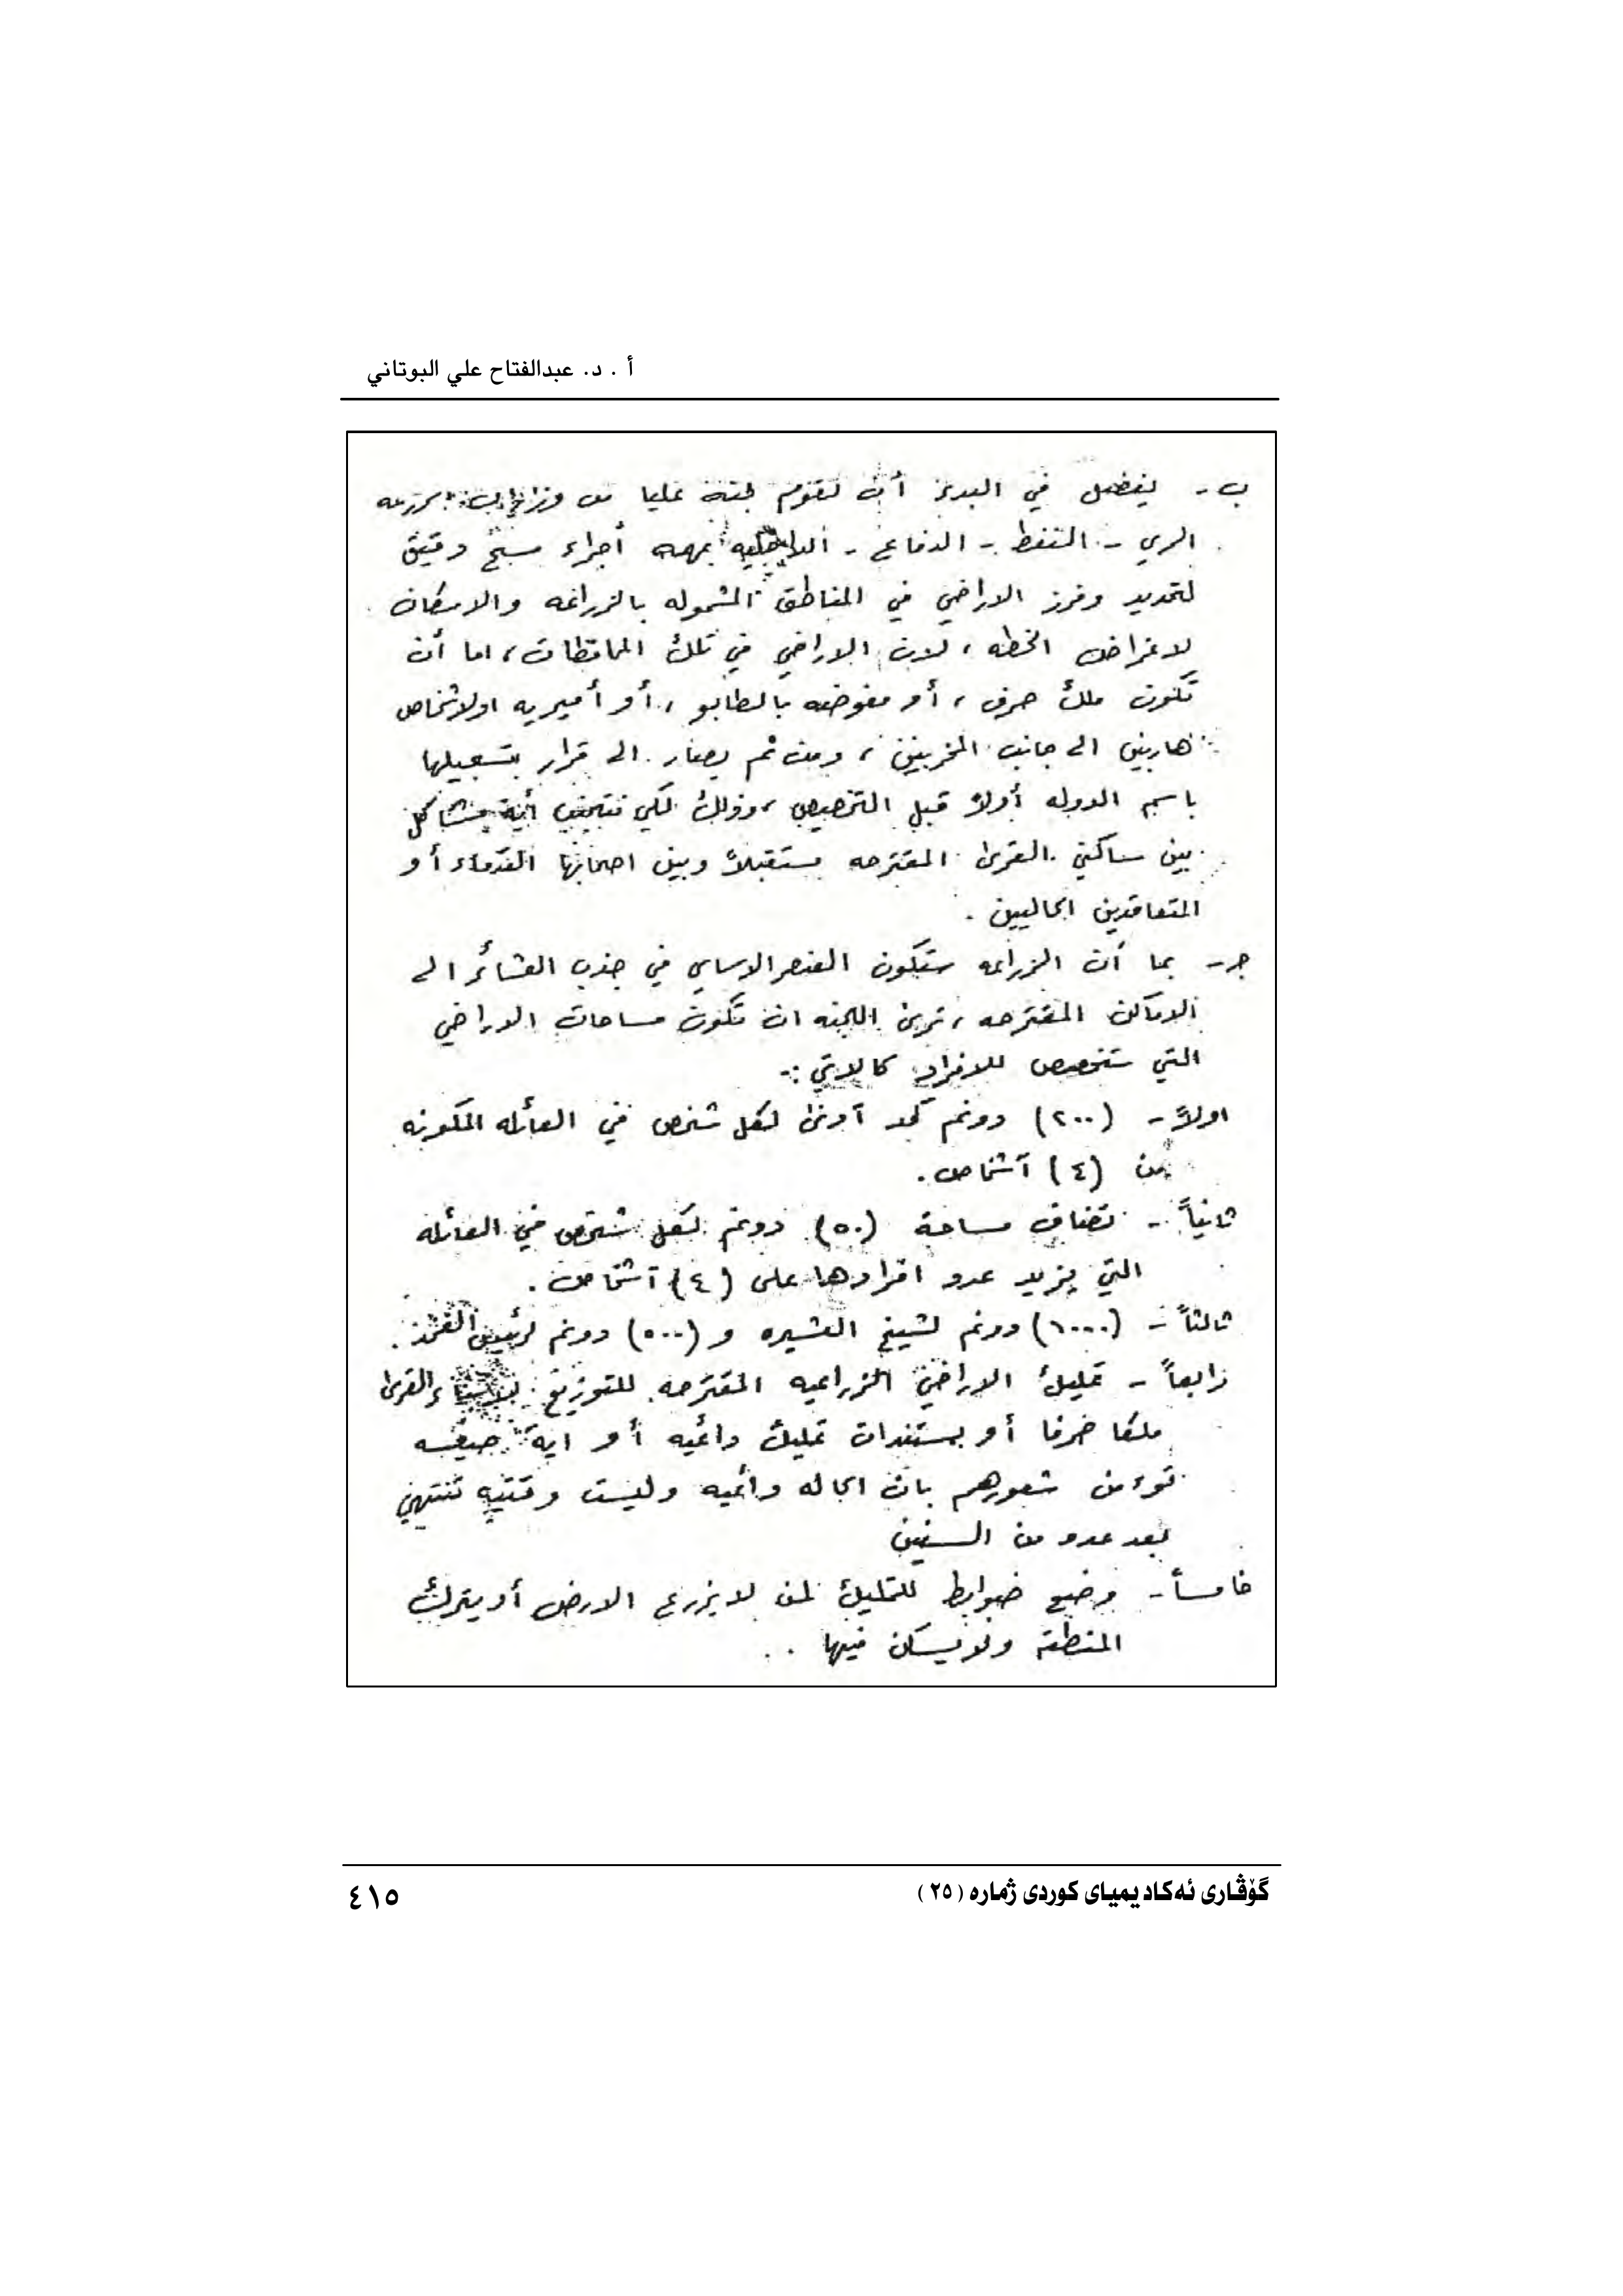 أ . د. عبدالفتاح علي البوتاني
ب - يفضل في البدء أن تقوم لجنة عليا من
الري - النفط - الدفاع - الداخليه بمهمه أجراء مسح دقيق
لتحديد وفرز الاراضي في المناطق المشموله بالزراعه والاسكان
لاغراض الخطه ، لان الاراضي في تلك المحافظات ، اما أن
تكون ملك صرف ، أو مفوضه بالطابو ، أو أميريه اولاشخاص
هاربين الى جانب المخربين ، ومن ثم يصار الى قرار بتسجيلها
باسم الدوله أولاً قبل التخصيص ، وذلك لكي نتجنب أية مشاكل
بين ساكني القرى المقترحه مستقبلاً وبين اصحابها القدماء أو
المتعاقدين الحاليين .
جـ - بما أن الزراعه ستكون العنصر الاساسي في جذب العشائر الى
الاماكن المقترحه ، ترى اللجنه ان تكون مساحات الاراضي
التي ستخصص للافراد كالاتي :-
اولاً - (٢٠٠) دونم كحد آدنى لكل شخص في العائله المكونه
من (٤) آشخاص .
ثانياً - تضاف مساحة (٥٠) دونم لكل شخص في العائله
التي يزيد عدد افرادها على (٤) آشخاص .
ثالثاً - (١٠٠٠) دونم لشيخ العشيره و (٥٠٠) دونم لرئيس الفخذ .
رابعاً - تمليك الاراضي الزراعيه المقترحه للتوزيع لابناء القرى
ملكا صرفا أو بمستندات تمليك دائميه أو اية صيغه
توءمن شعورهم بان الحاله دائميه وليست وقتيه تنتهي
بعد عدد من السنين
خامساً - وضع ضوابط للتمليك لمن لايزرع الارض أو يترك
المنطقة ولا يسكن فيها . .
گۆڤاری ئەکادیمیای کوردی ژمارە (٢٥)
٤١٥